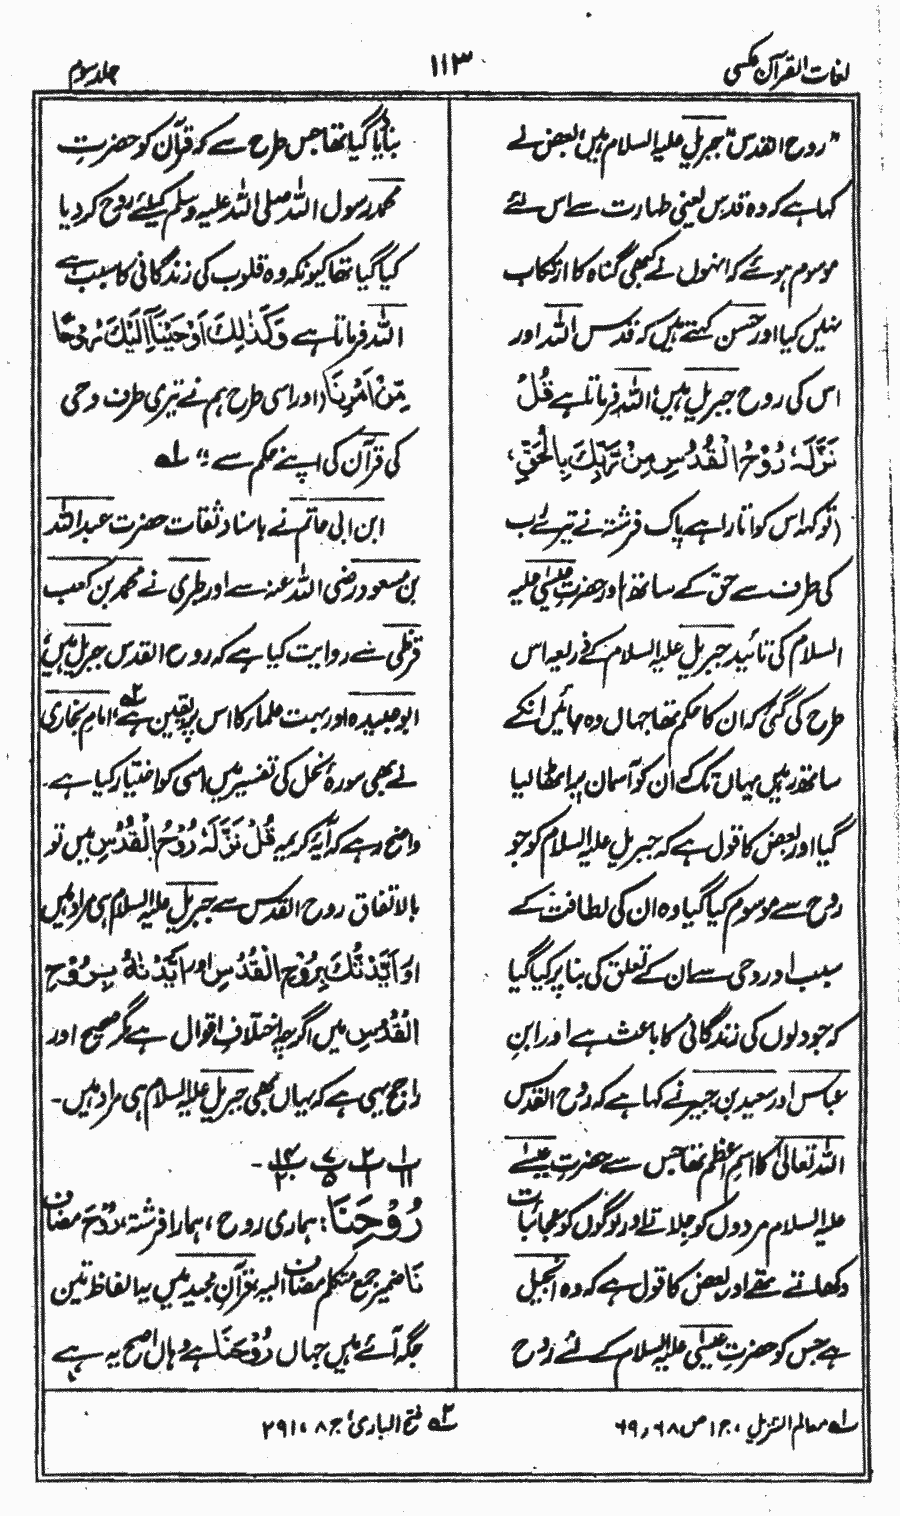 لغات القرآن مکمل
۱۱۳
جلد سوم
”روح القدس“ جبریل علیہ السلام ہیں، بعض نے
کہا ہے کہ وہ قدس یعنی طہارت سے اس لئے
موسوم ہوئے کہ انہوں نے کبھی گناہ کا ارتکاب
نہیں کیا اور حسن کہتے ہیں کہ قدس اللہ اور
اس کی روح جبریل ہیں، اللہ فرماتا ہے قُلْ
نَزَّلَہٗ رُوْحُ الْقُدُسِ مِنْ رَّبِّکَ بِالْحَقِّ،
(تو کہہ اس کو اتارا ہے پاک فرشتہ نے تیرے رب
کی طرف سے حق کے ساتھ) اور حضرت عیسیٰ علیہ
السلام کی تائید جبریل علیہ السلام کے ذریعہ اس
طرح کی گئی کہ ان کا حکم تھا جہاں وہ جائیں انکے
ساتھ رہیں یہاں تک کہ ان کو آسمان پر اٹھا لیا
گیا اور بعض کا قول ہے کہ جبریل علیہ السلام کو جو
روح سے موسوم کیا گیا وہ ان کی لطافت کے
سبب اور وحی سے ان کے تعلق کی بنا پر کیا گیا
کہ جو دلوں کی زندگانی کا باعث ہے اور ابن
عباس اور سعید بن جبیر نے کہا ہے کہ روح القدس
اللہ تعالیٰ کا اسم اعظم تھا جس سے حضرت عیسےٰ
علیہ السلام مردوں کو جلاتے اور لوگوں کو عجائبات
دکھلاتے تھے اور بعض کا قول ہے کہ وہ انجیل
ہے جس کو حضرت عیسیٰ علیہ السلام کے لئے روح
بنایا گیا تھا جس طرح سے کہ قرآن کو حضرت
محمد رسول اللہ صلی اللہ علیہ وسلم کیلئے روح کر دیا
کیا گیا تھا کیونکہ وہ قلوب کی زندگانی کا سبب ہے
اللہ فرماتا ہے وَکَذٰلِکَ اَوْحَیْنَآ اِلَیْکَ رُوْحًا
مِّنْ اَمْرِنَا (اور اسی طرح ہم نے تیری طرف وحی
کی قرآن کی اپنے حکم سے)“ ۱؎
ابن ابی حاتم نے باسناد ثقات حضرت عبداللہ
بن مسعود رضی اللہ عنہ سے اور طبری نے محمد بن کعب
قرظی سے روایت کیا ہے کہ روح القدس جبریل ہیں،
ابو عبیدہ اور بہت علماء کا اس پر یقین ہے ۲؎، امام بخاری
نے بھی سورۂ نحل کی تفسیر میں اسی کو اختیار کیا ہے۔
واضح رہے کہ آیۂ کریمہ قُلْ نَزَّلَہٗ رُوْحُ الْقُدُسِ میں تو
بالاتفاق روح القدس سے جبریل علیہ السلام ہی مراد ہیں
اور اَیَّدْتُّکَ بِرُوْحِ الْقُدُسِ اور اَیَّدْنٰہُ بِرُوْحِ
الْقُدُسِ میں اگرچہ اختلاف اقوال ہے مگر صحیح اور
راجح یہی ہے کہ یہاں بھی جبریل علیہ السلام ہی مراد ہیں۔
رُوْحَنَا: ہماری روح، ہمارا فرشتہ، رُوْحَ مضاف
نَا ضمیر جمع متکلم مضاف الیہ، قرآن مجید میں یہ الفاظ تین
جگہ آئے ہیں جہاں رُوْحَنَا ہے وہاں اصح یہ ہے
۱؎ معالم التنزیل، ج ۱ ص ۶۸ و ۶۹
۲؎ فتح الباری، ج ۸، ۲۹۱